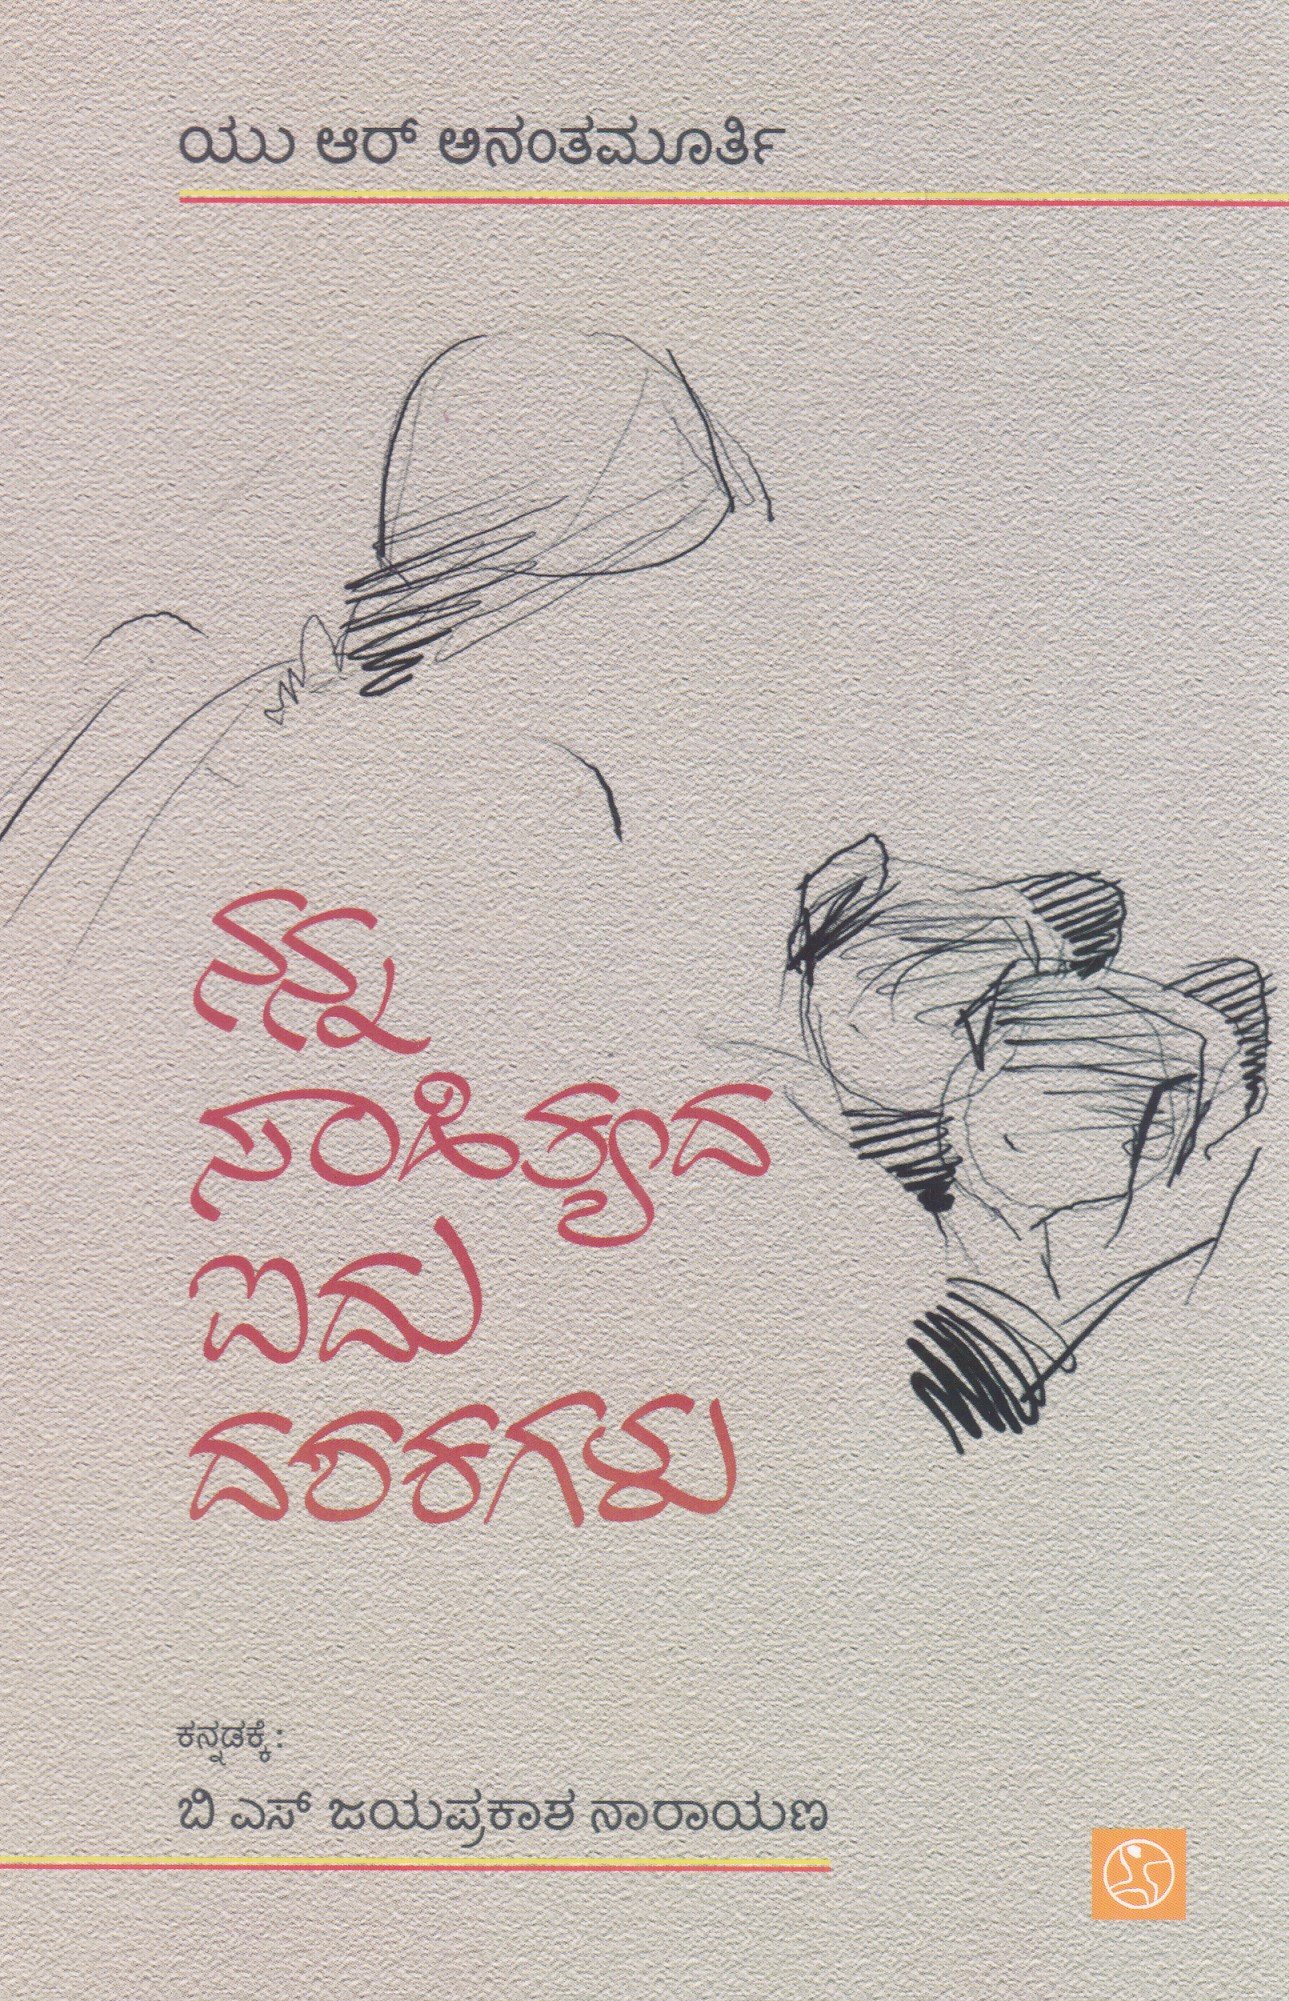 ಯು ಆರ್ ಅನಂತಮೂರ್ತಿ
ನನ್ನ
ಸಾಹಿತ್ಯದ
ಐದು
ದಶಕಗಳು
ಕನ್ನಡಕ್ಕೆ :
ಬಿ ಎಸ್ ಜಯಪ್ರಕಾಶ ನಾರಾಯಣ